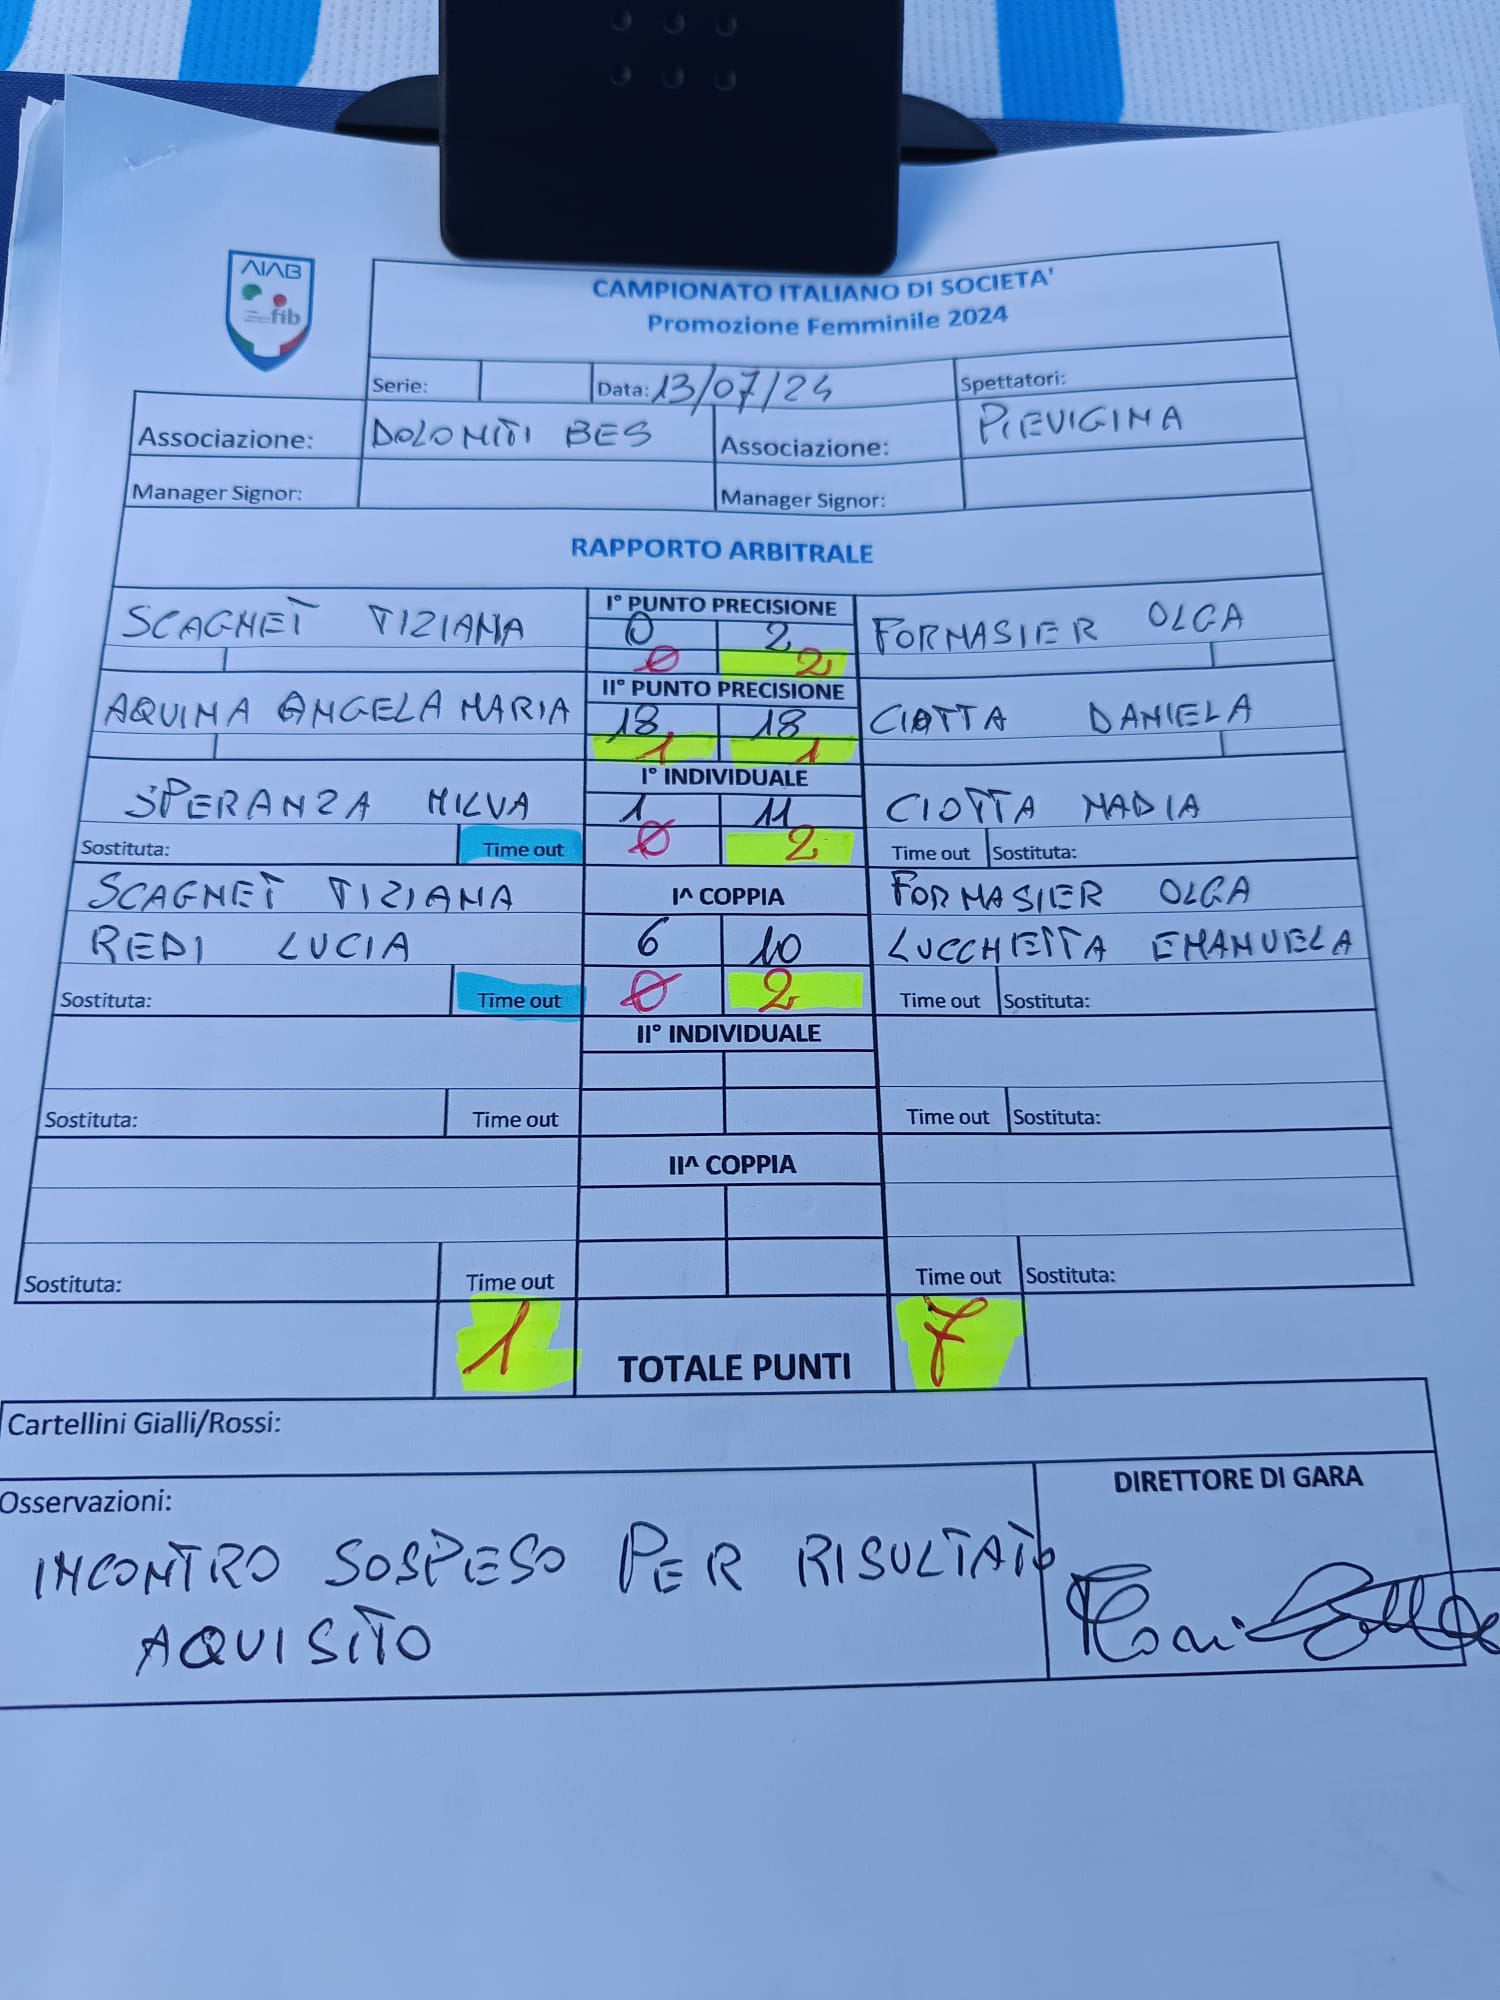 AIAB
fib
CAMPIONATO ITALIANO DI SOCIETA'
Promozione Femminile 2024
Serie: Data: 13/07/24 Spettatori:
Associazione: DOLOMITI BES Associazione: PIEVIGINA
Manager Signor: Manager Signor:
RAPPORTO ARBITRALE
I° PUNTO PRECISIONE
SCAGNET TIZIANA 0 2 FORNASIER OLGA
0 2
II° PUNTO PRECISIONE
AQUINA ANGELA MARIA 18 18 CIOTTA DANIELA
1 1
I° INDIVIDUALE
SPERANZA MILVA 1 11 CIOTTA NADIA
Sostituta: Time out 0 2 Time out Sostituta:
SCAGNET TIZIANA I^ COPPIA FORNASIER OLGA
REDI LUCIA 6 10 LUCCHETTA EMANUELA
Sostituta: Time out 0 2 Time out Sostituta:
II° INDIVIDUALE
Sostituta: Time out Time out Sostituta:
II^ COPPIA
Sostituta: Time out Time out Sostituta:
1 TOTALE PUNTI 7
Cartellini Gialli/Rossi:
Osservazioni: DIRETTORE DI GARA
INCONTRO SOSPESO PER RISULTATO
AQUISITO